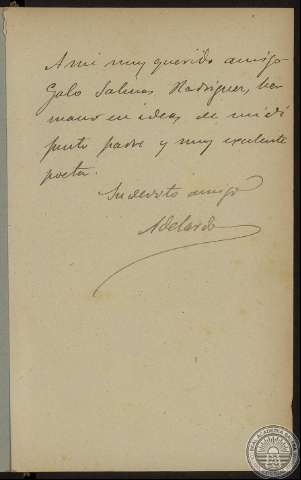 A mi muy querido amigo
Galo Salinas Rodríguez, her
mano en ideas de mi di
funto padre y muy excelente
poeta.
Su devoto amigo
Adelardo